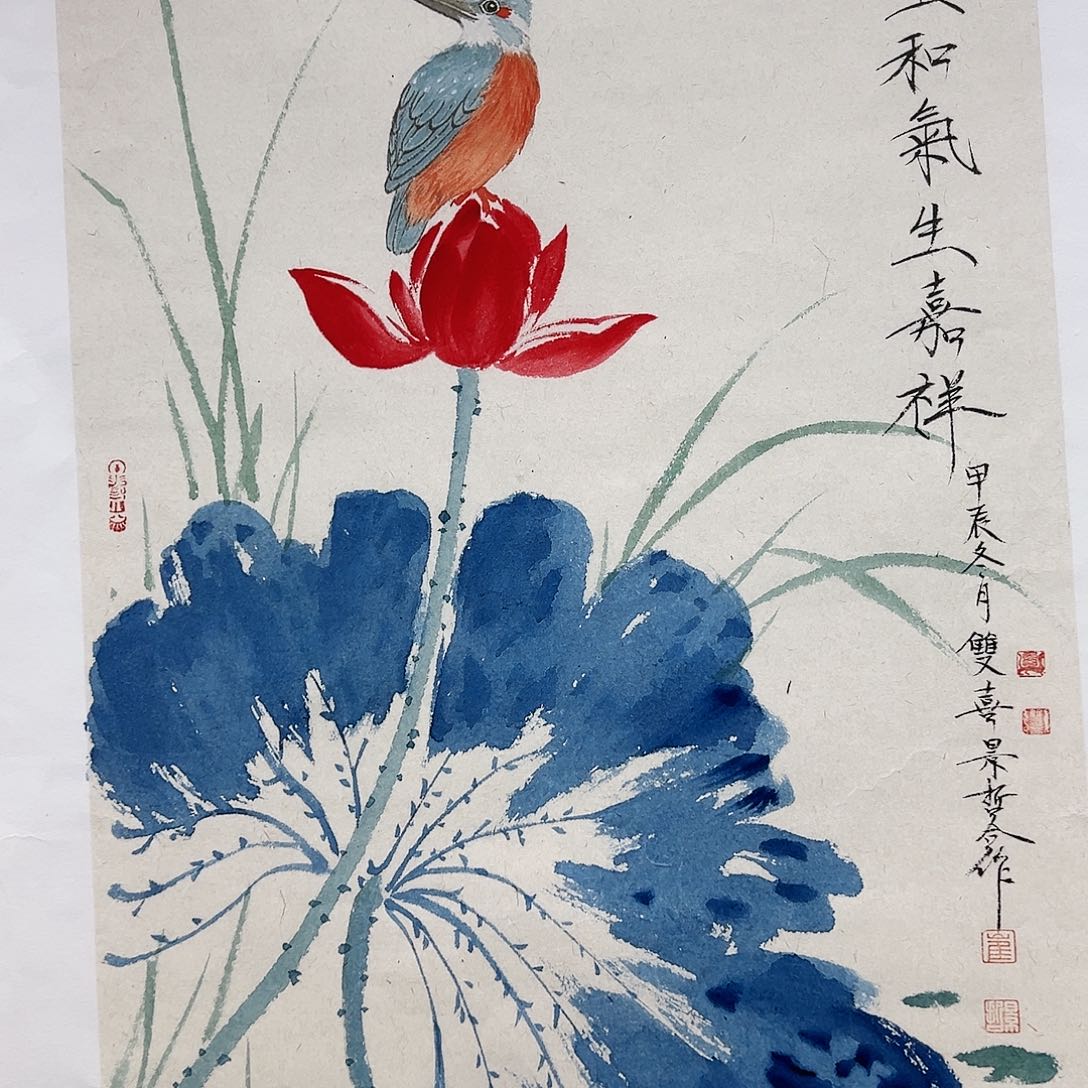 和氣生嘉祥
甲辰冬月雙喜景哲合作